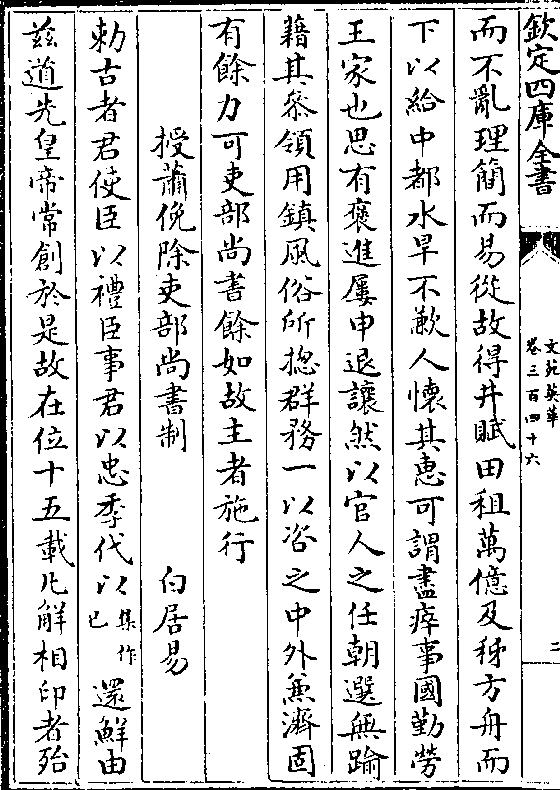 欽定四庫全書
文苑英華
卷三百四十六
二
而不亂理簡而易從故得井賦田租萬億及秭方舟而
下以給中都水旱不歉人懷其惠可謂盡瘁事國勤勞
王家也思有褒進屢申退讓然以官人之任朝選無踰
藉其叅領用鎮風俗所揔群務一以咨之中外兼濟固
有餘力可吏部尚書餘如故主者施行
授蕭俛除吏部尚書制 白居易
勅古者君使臣以禮臣事君以忠季代以集作已還鮮由
兹道先皇帝常創於是故在位十五載凡解相印者殆